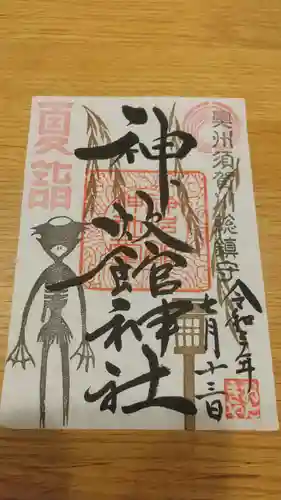 奥州須賀川総鎮守
神炊館神社
令和年
七月十三日
夏詣